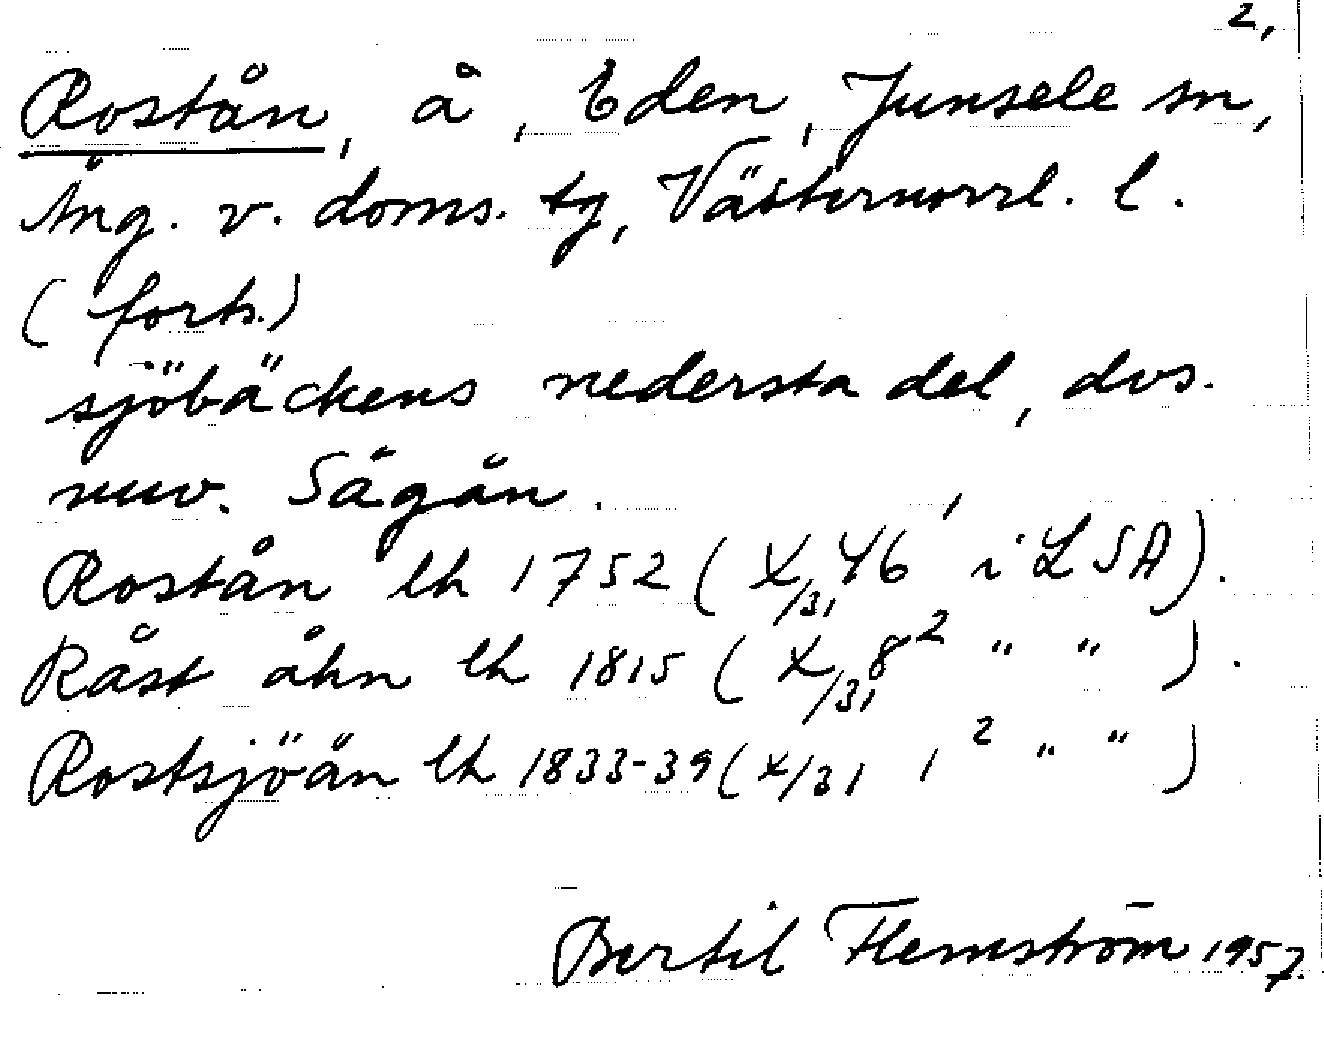 2,
Rostån, å, Eden, Junsele sn,
Ång. v. doms. tg, Västernorrl. l.
(forts.)
sjöbäckens nedersta del, dvs.
nuv. Sågån.
Rostån lk 1752 (X/31, 46 i LSA).
Råst åhn lk 1815 (X/31, 8² " " ).
Rostsjöån lk 1833-39 (X/31, 1² " " )
Bertil Flemström 1957.